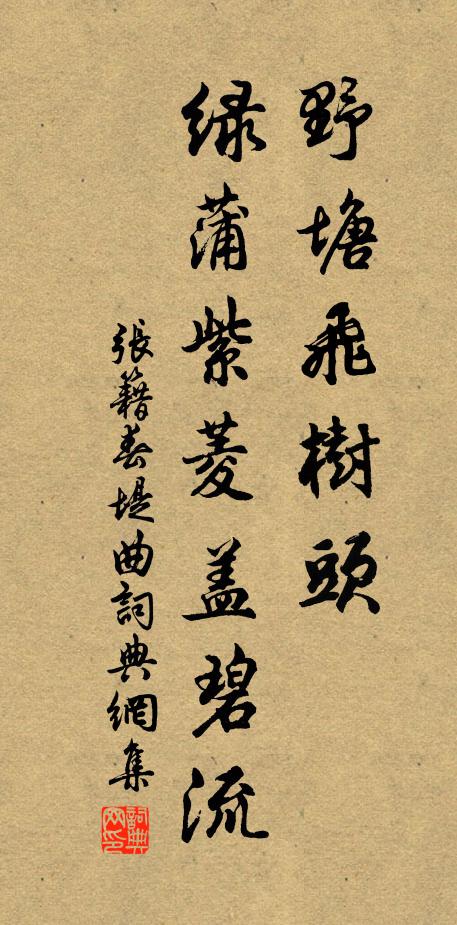 野塘飛樹頭
緑蒲紫菱蓋碧流
張籍春堤曲詞典網集
詞典网印